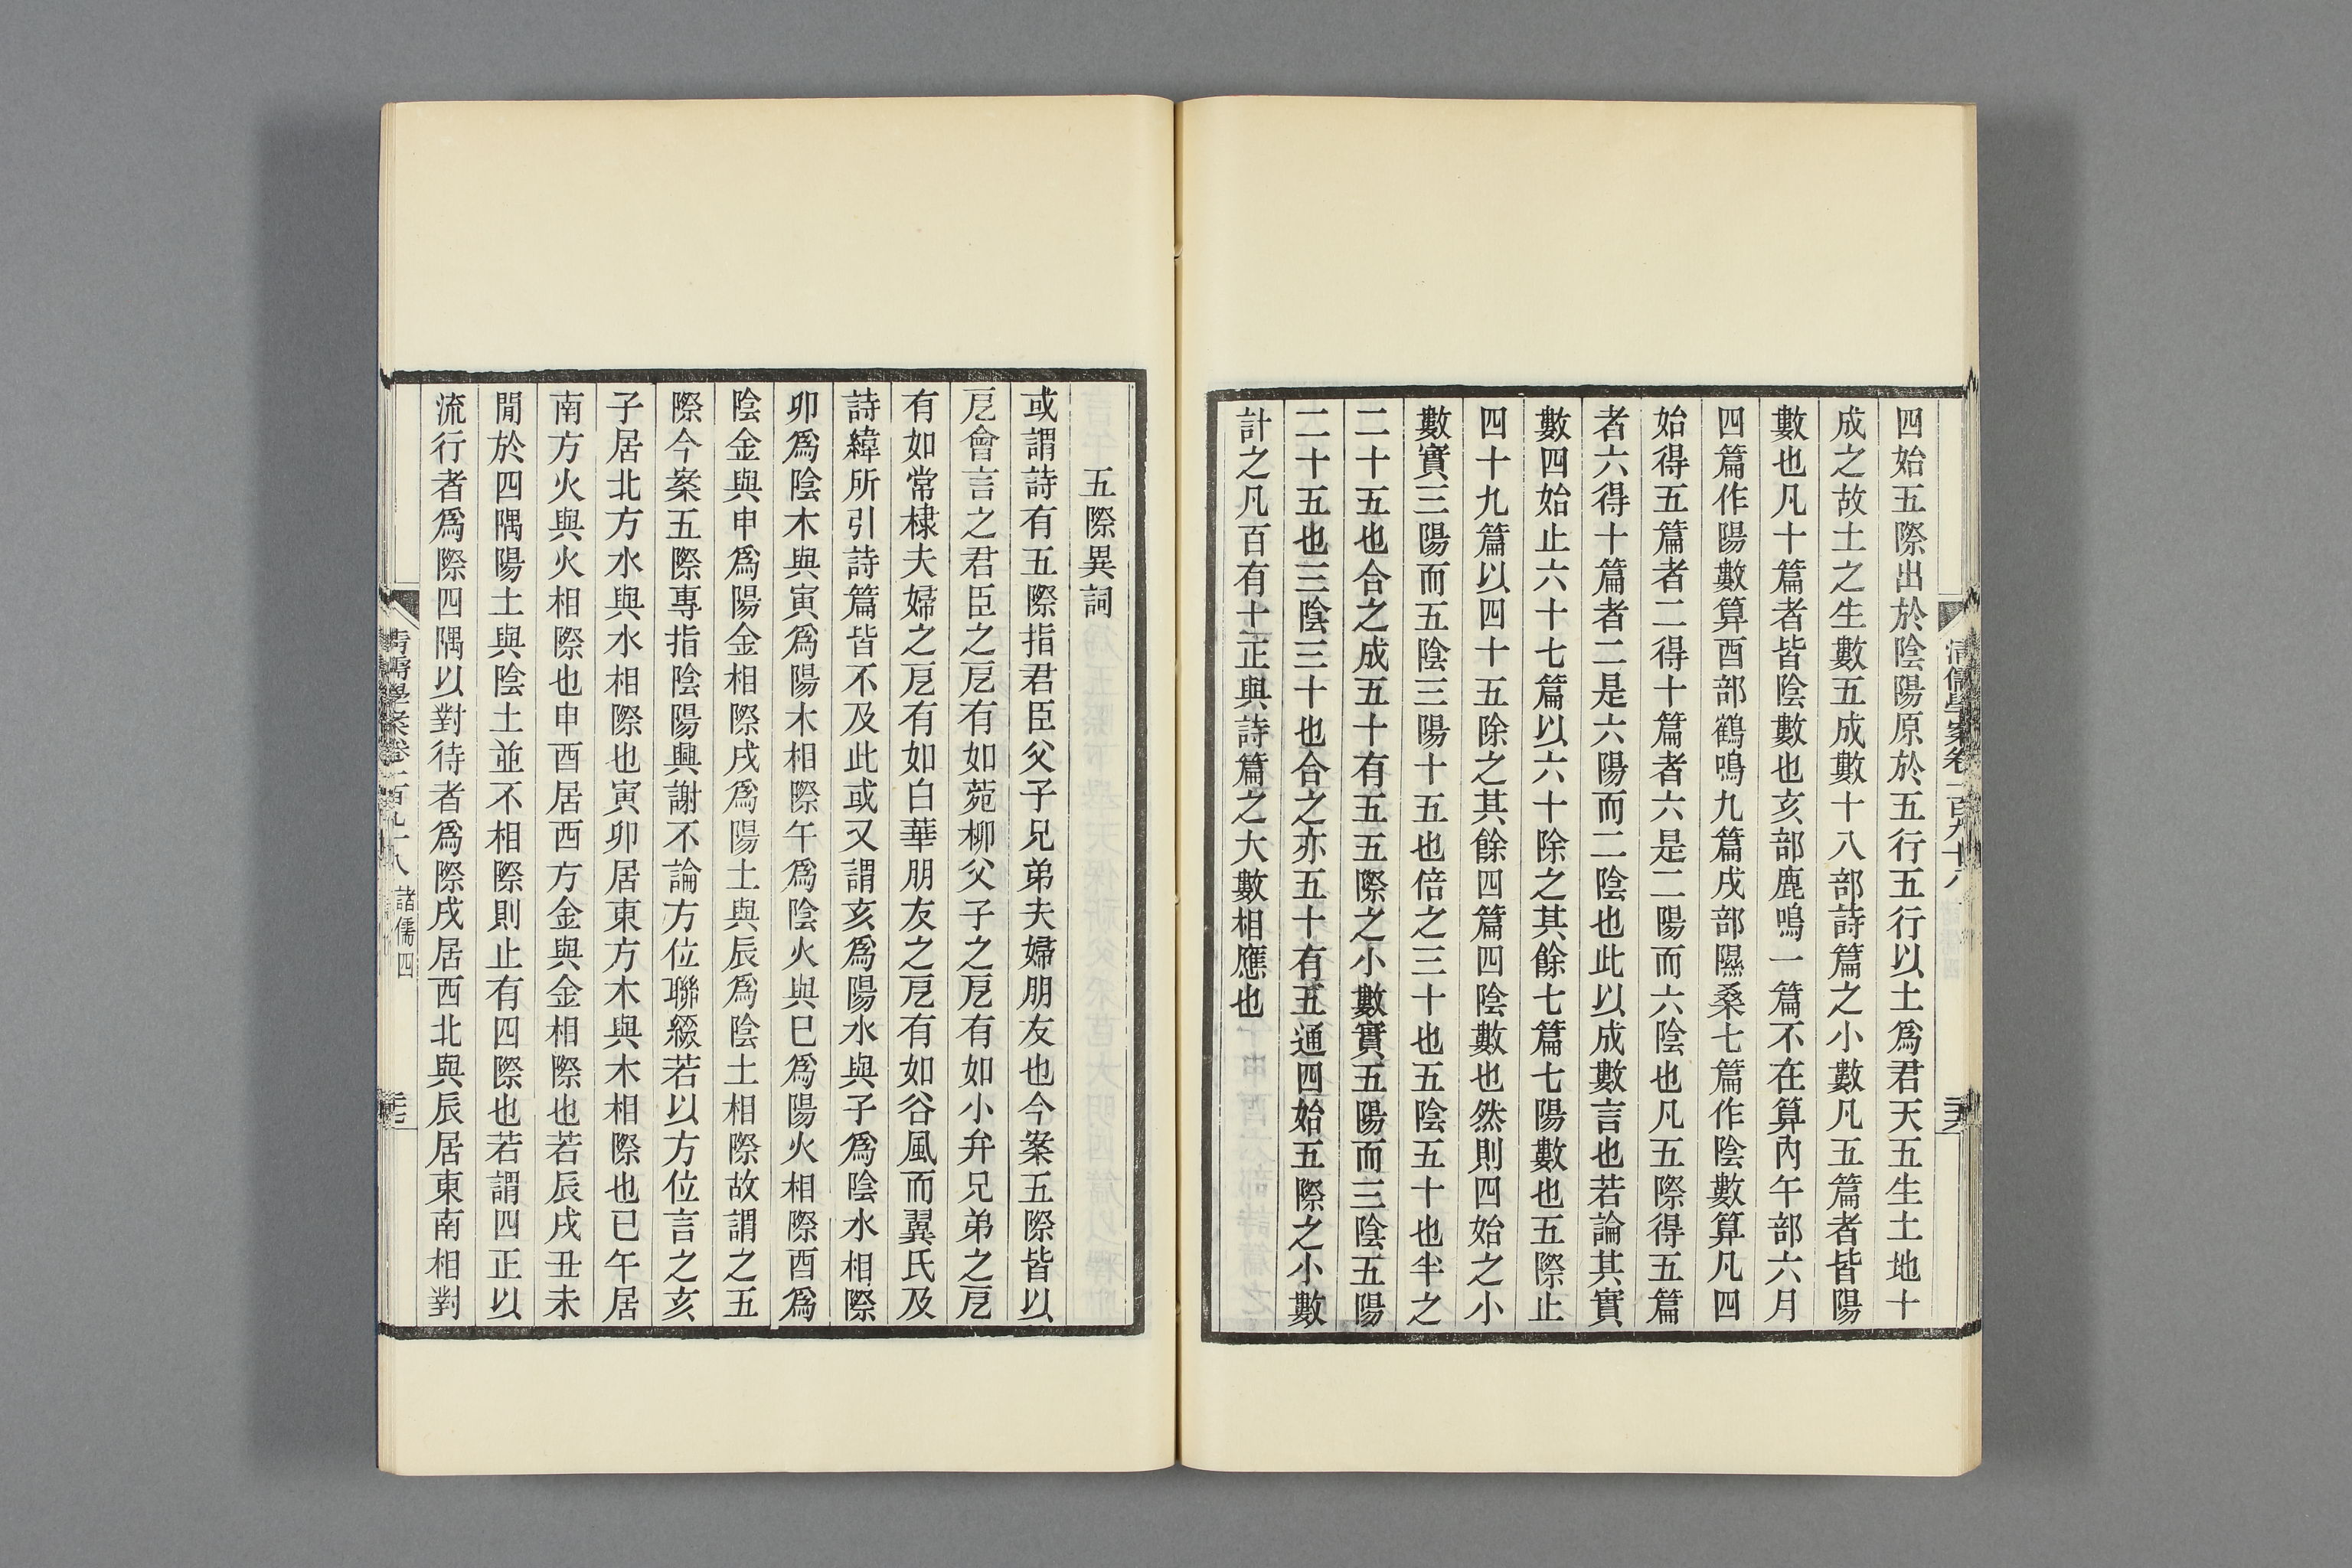 四始五際出於陰陽原於五行五行以土爲君天五生土地十
成之故土之生數五成數十八部詩篇之小數凡五篇者皆陽
數也凡十篇者皆陰數也亥部鹿鳴一篇不在算內午部六月
四篇作陽數算酉部鶴鳴九篇戌部隰桑七篇作陰數算凡四
始得五篇者二得十篇者六是二陽而六陰也凡五際得五篇
者六得十篇者二是六陽而二陰也此以成數言也若論其實
數四始止六十七篇以六十除之其餘七篇七陽數也五際止
四十九篇以四十五除之其餘四篇四陰數也然則四始之小
數實三陽而五陰三陽十五也倍之三十也五陰五十也半之
二十五也合之成五十有五五際之小數實五陽而三陰五陽
二十五也三陰三十也合之亦五十有五通四始五際之小數
計之凡百有十正與詩篇之大數相應也
五際異詞
或謂詩有五際指君臣父子兄弟夫婦朋友也今案五際皆以
戹會言之君臣之戹有如菀柳父子之戹有如小弁兄弟之戹
有如常棣夫婦之戹有如白華朋友之戹有如谷風而翼氏及
詩緯所引詩篇皆不及此或又謂亥爲陽水與子爲陰水相際
卯爲陰木與寅爲陽木相際午爲陰火與巳爲陽火相際酉爲
陰金與申爲陽金相際戌爲陽土與辰爲陰土相際故謂之五
際今案五際專指陰陽興謝不論方位聯綴若以方位言之亥
子居北方水與水相際也寅卯居東方木與木相際也巳午居
南方火與火相際也申酉居西方金與金相際也若辰戌丑未
閒於四隅陽土與陰土並不相際則止有四際也若謂四正以
流行者爲際四隅以對待者爲際戌居西北與辰居東南相對
清儒學案卷一百九十八 諸儒四